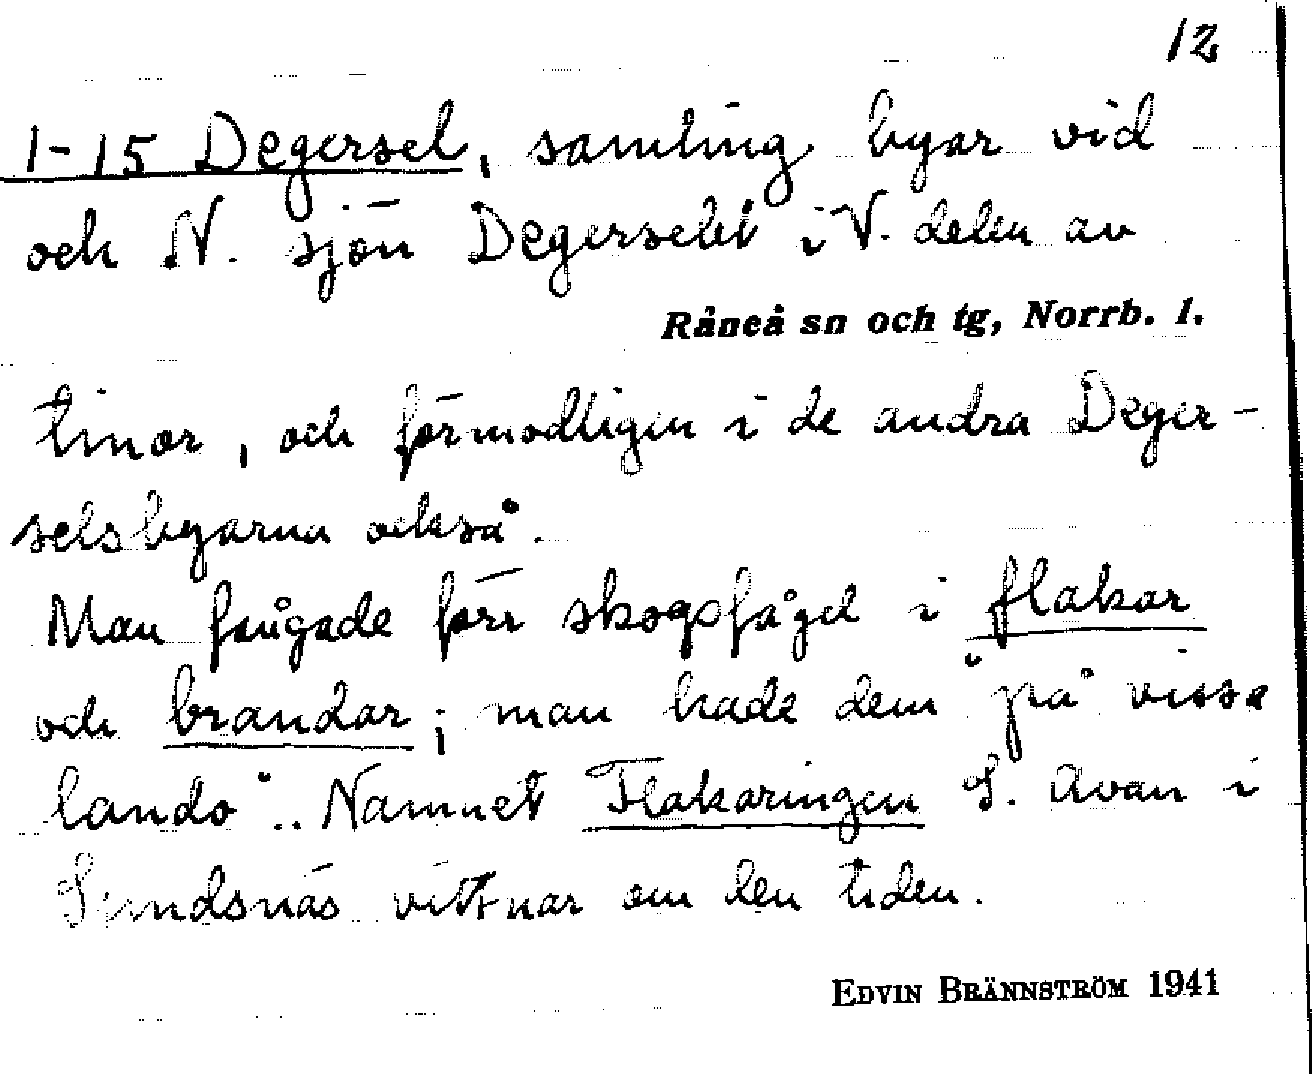 12
1-15 Degersel, samling byar vid
och N. sjön Degerselet i V. delen av
Råneå sn och tg, Norrb. l.
tinor, och förmodligen i de andra Deger-
selsbyarna också.
Man fångade förr skogsfågel i flakar
och brandar; man hade dem "på vissa
lando". Namnet Flakaringen S. Avan i
Sundsnäs vittnar om den tiden.
EDVIN BRÄNNSTRÖM 1941